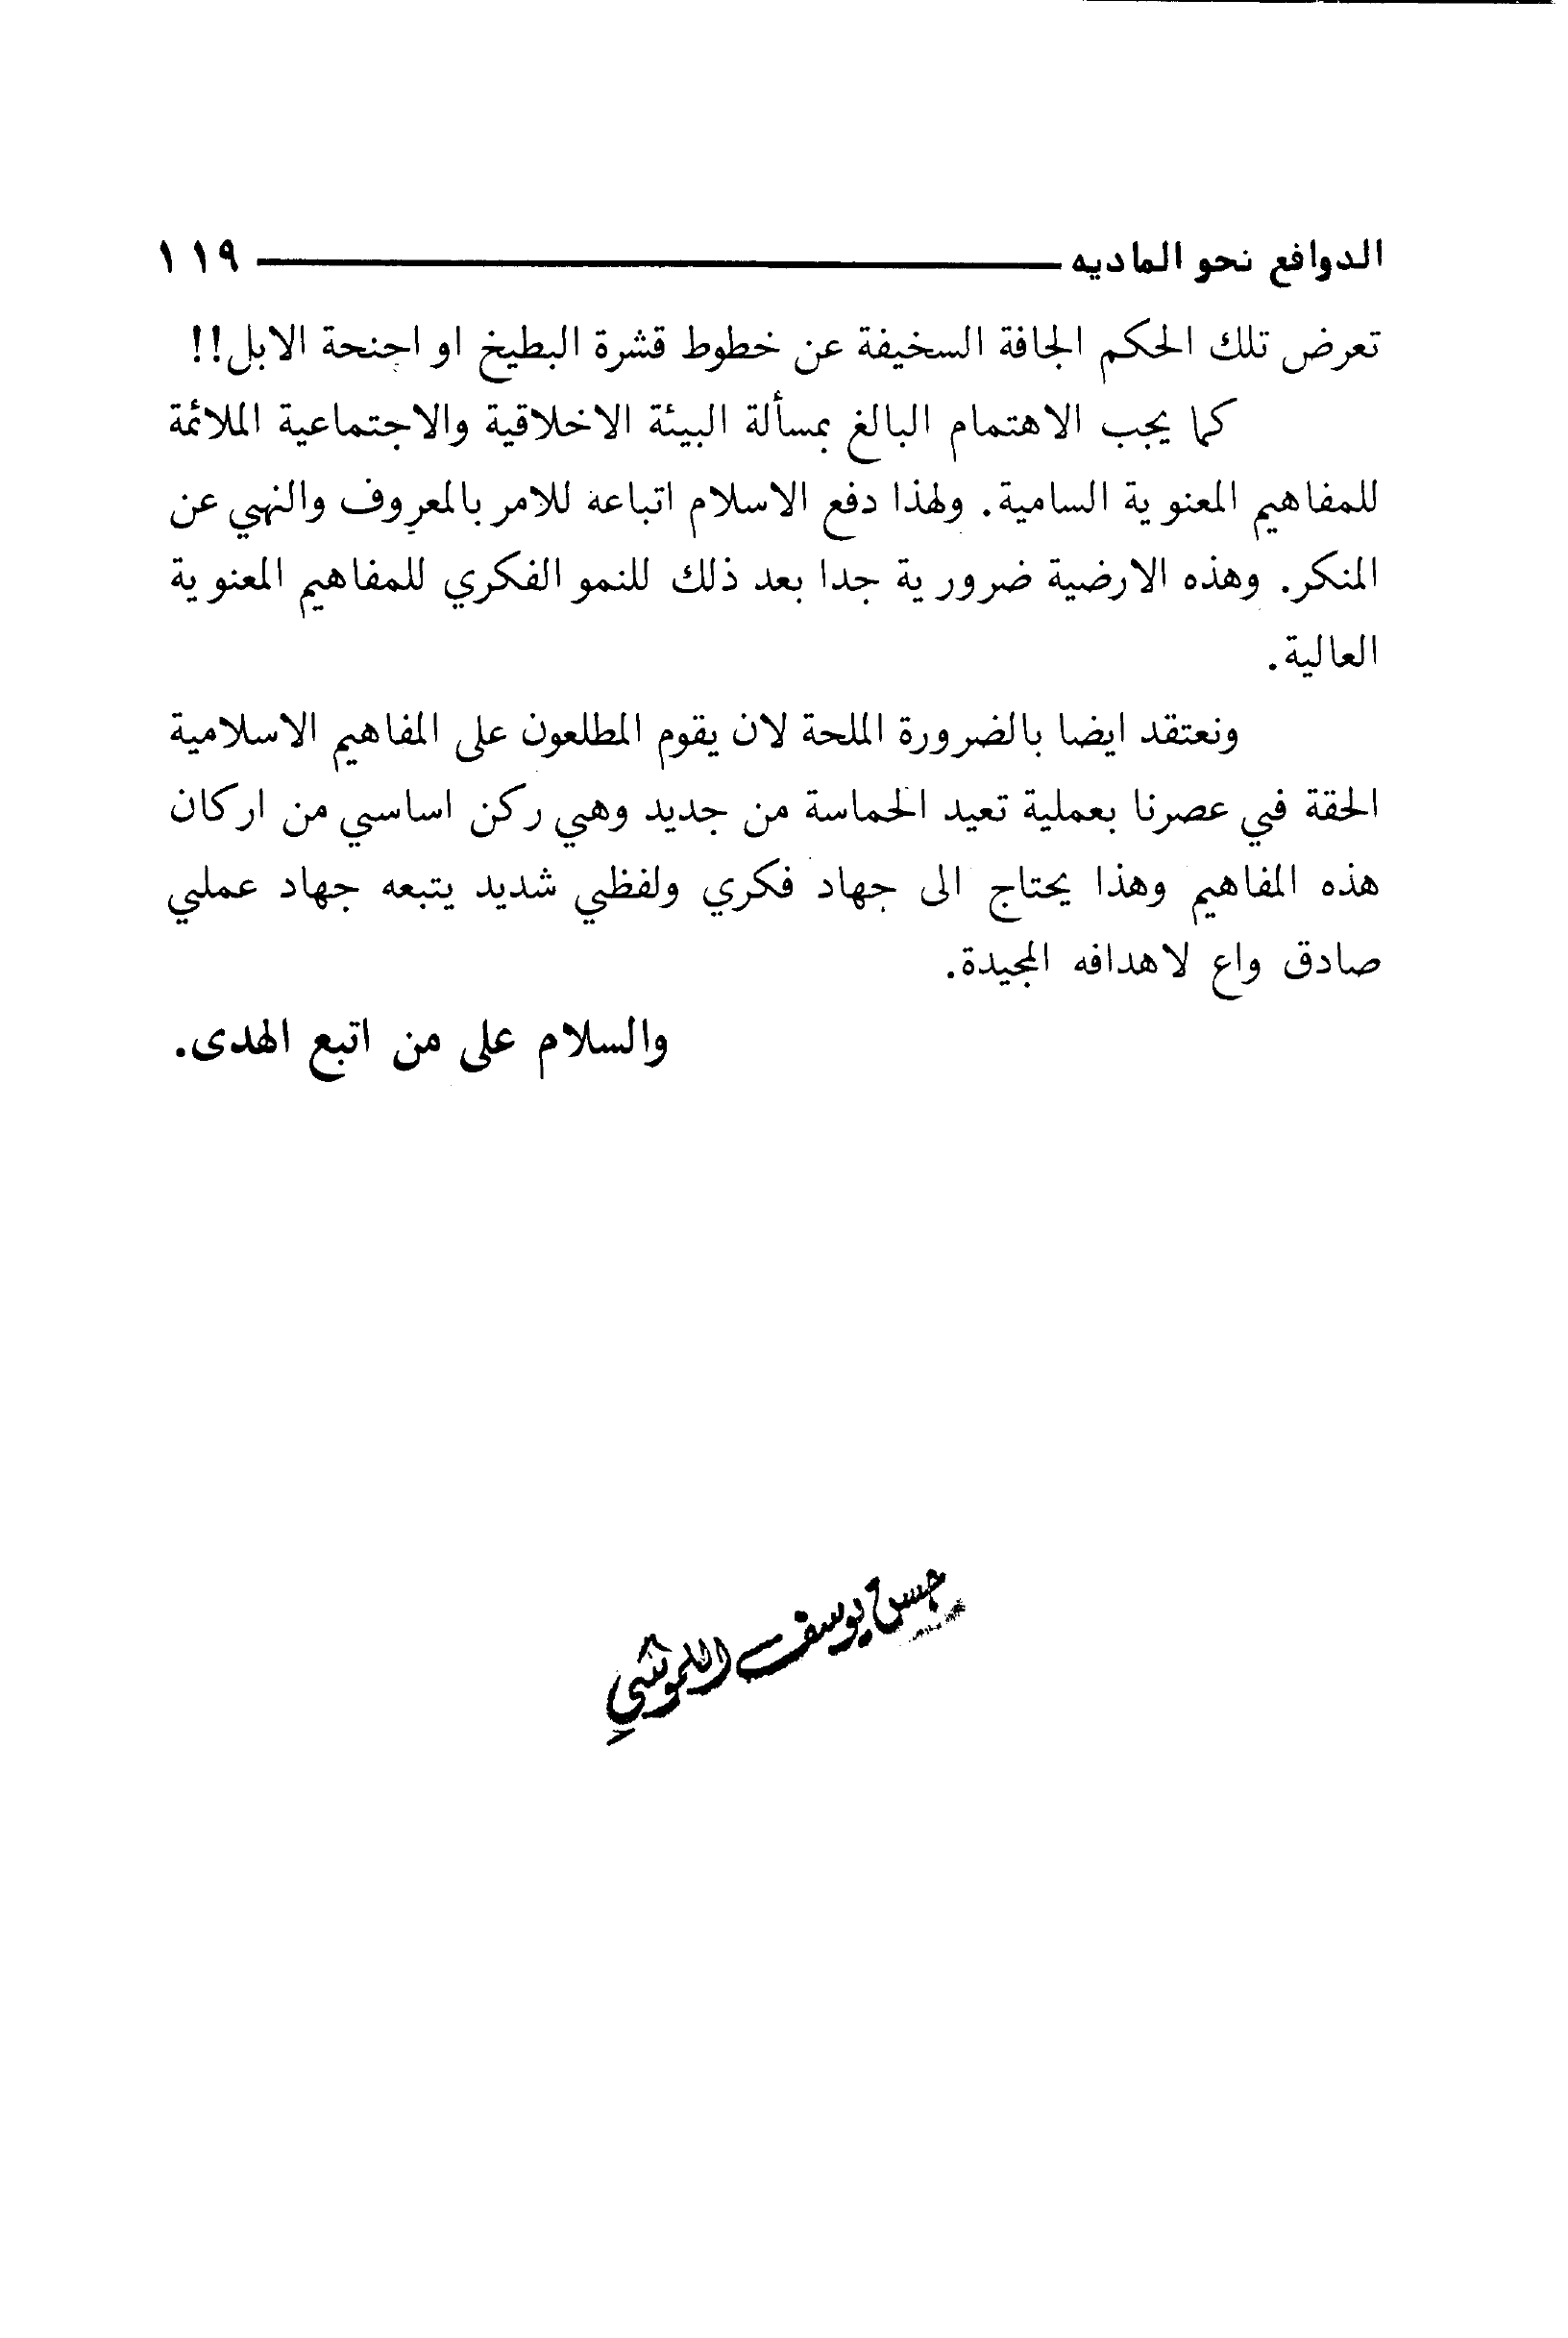 الدوافع نحو الماديه ١١٩
تعرض تلك الحكم الجافة السخيفة عن خطوط قشرة البطيخ او اجنحة الابل!!
كما يجب الاهتمام البالغ بمسألة البيئة الاخلاقية والاجتماعية الملائمة
للمفاهيم المعنوية السامية. ولهذا دفع الاسلام اتباعه للامر بالمعروف والنهي عن
المنكر. وهذه الارضية ضرورية جدا بعد ذلك للنمو الفكري للمفاهيم المعنوية
العالية.
ونعتقد ايضا بالضرورة الملحة لان يقوم المطلعون على المفاهيم الاسلامية
الحقة في عصرنا بعملية تعيد الحماسة من جديد وهي ركن اساسي من اركان
هذه المفاهيم وهذا يحتاج الى جهاد فكري ولفظي شديد يتبعه جهاد عملي
صادق واع لاهدافه المجيدة.
والسلام على من اتبع الهدى.
حسن يوسف